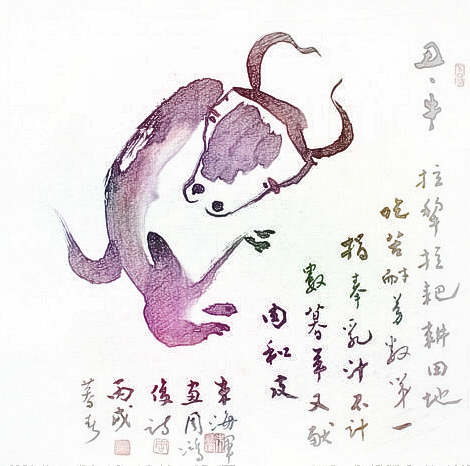 丑、牛
拉犁拉耙耕田地
吃苦耐劳数第一
捐奉乳汁不计
数暮年又献
肉和皮
东海
画周鸿
俊诗
丙戌
暮春